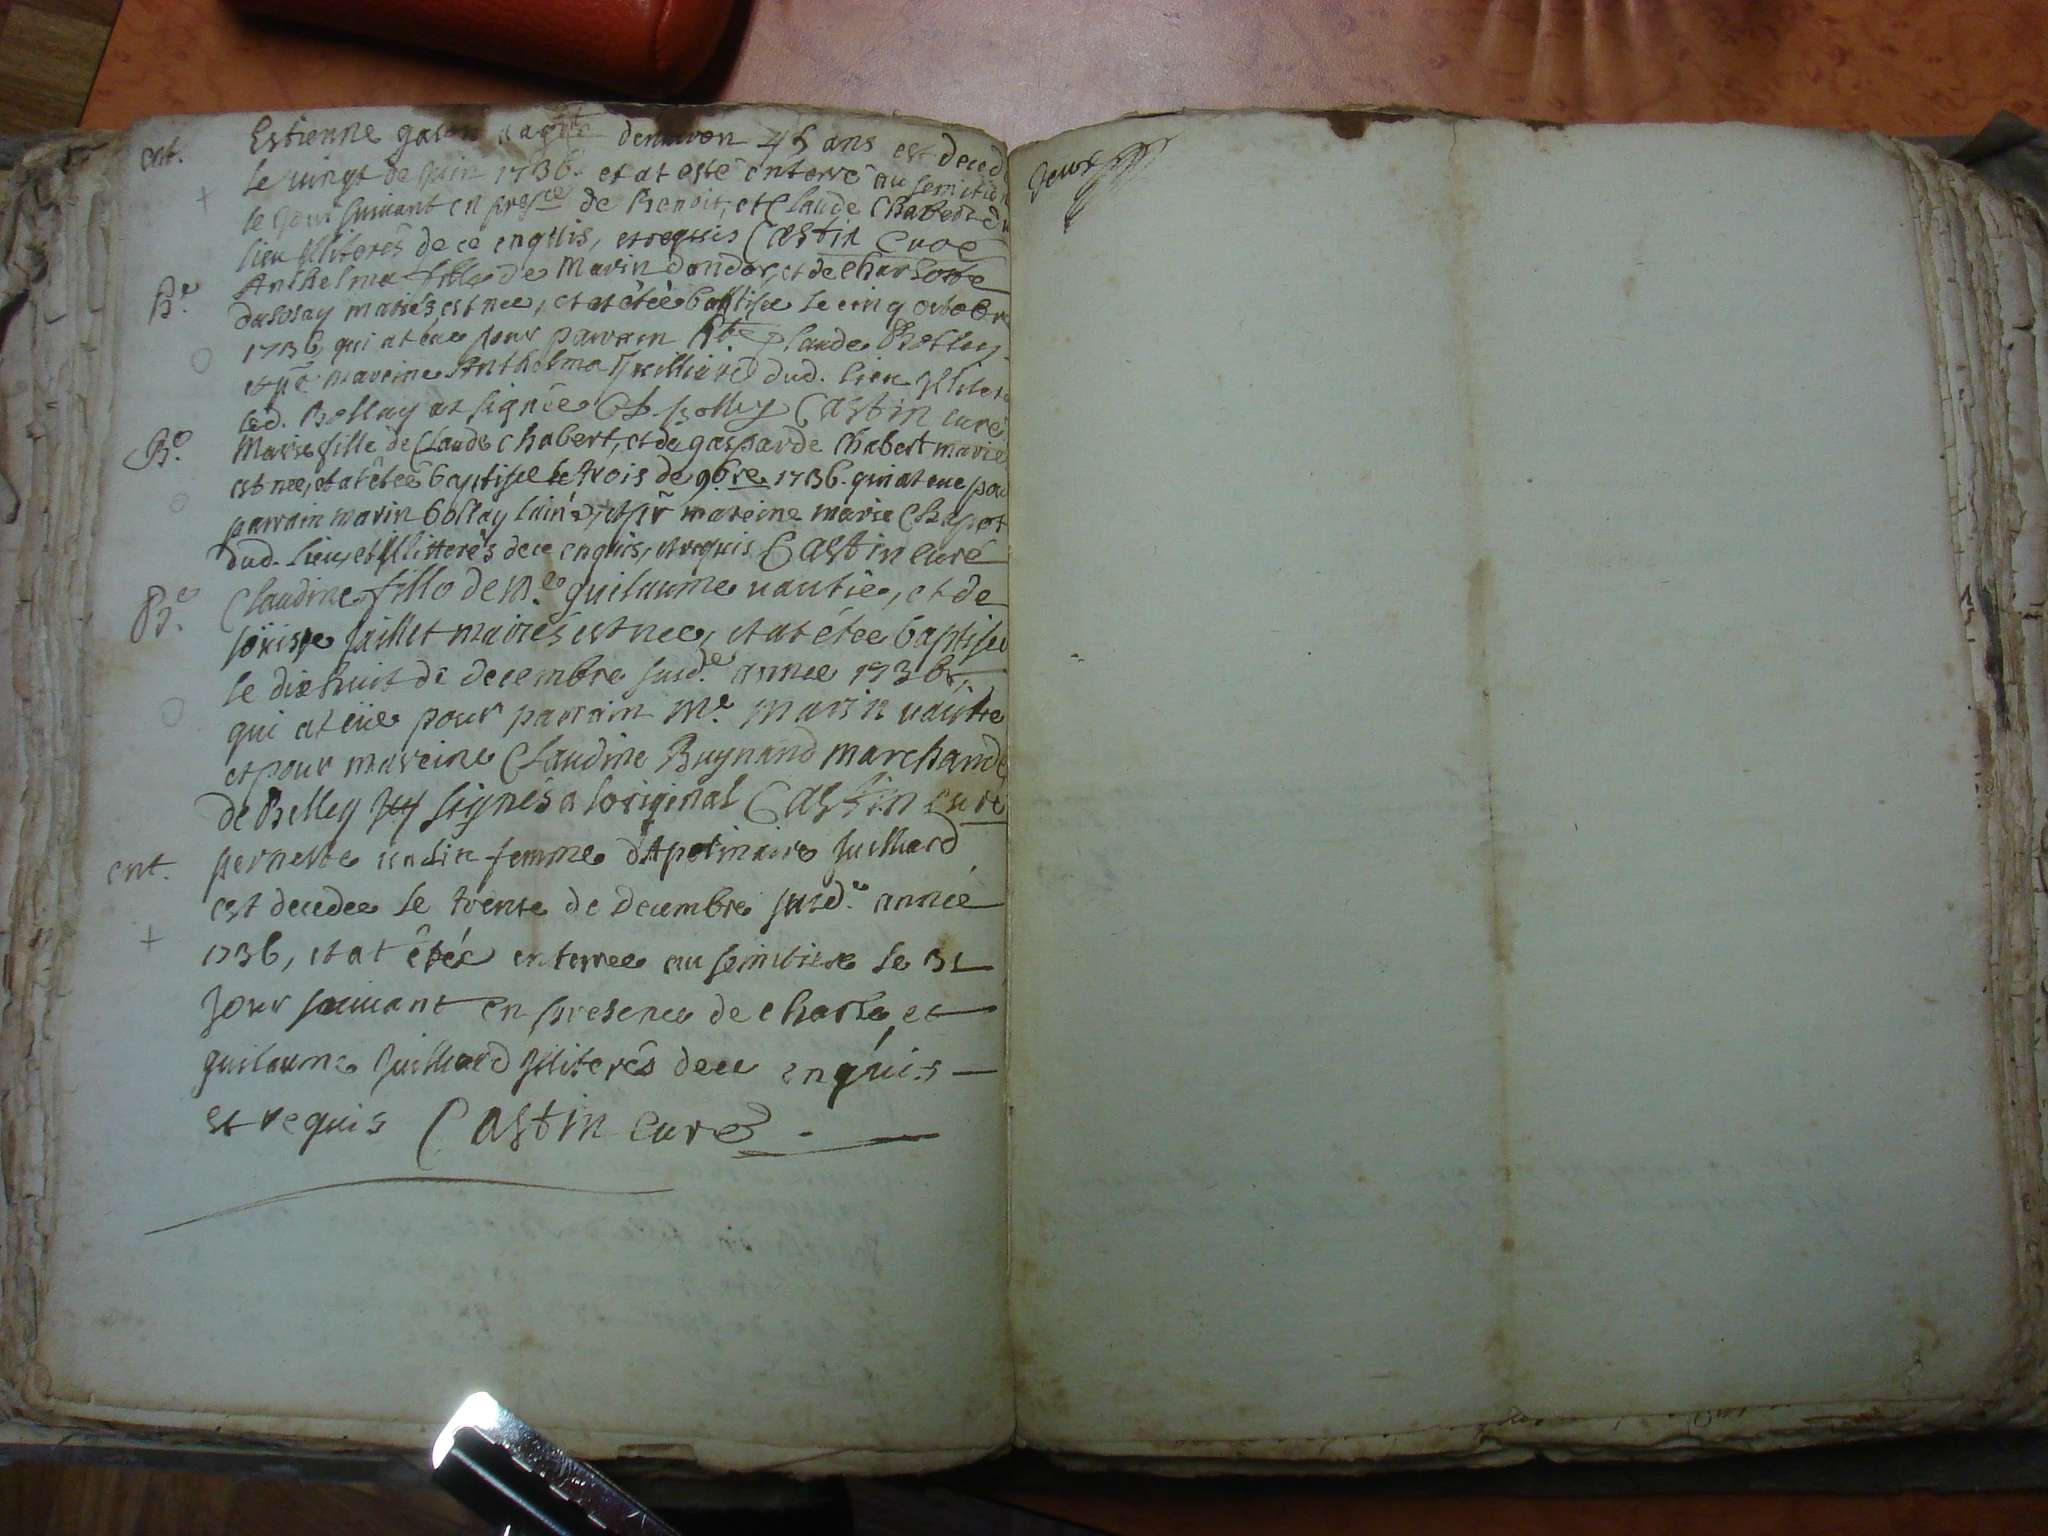 ent. Estienne agé denviron 45 ans est deced
le vingt de juin 1736. et at esté enterré au semitier
le jour suivant en presce de Benoit, et Claude Chabert du
lieu illiterés de ce enquis, et requis Castin Curé
Be. Anthelma fille de Marin dondor, et de Charlotte
mariés est nee, et at étée baptisée le cinq octobre
1736, qui at eue pour parrain Claude Bolley
et pr mareine Anthelma dud. lieu illiter
led. Bollay at signée Castin curé
Be. Marie fille de Claude Chabert, et de gasparde Chabert marié
est nee, et at étée baptisée le trois de 9bre 1736. qui at eue pou
parrain marin bollay lainé, et pr mareine marie Chapot
dud. lieu, et illitterés de ce enquis, et requis Castin curé
Be. Claudine fille de Me guilaume vautié, et de
loüise Juillet mariés est nee, et at étée baptisee
le dixhuit de decembre susde. année 1736,
qui at eüe pour parrain Me. Marin vautié
et pour mareine Claudine Buynand marchande
de Belley signés a loriginal Castin curé
ent. pernette femme dApolinaire Juilliard
est decedee le trente de Decembre susde. année
1736, et at étéé enterree au semitiere le 31
jour suivant en presence de Charle, et
guilaume Juilliard illiterés de ce enquis
et requis Castin curé